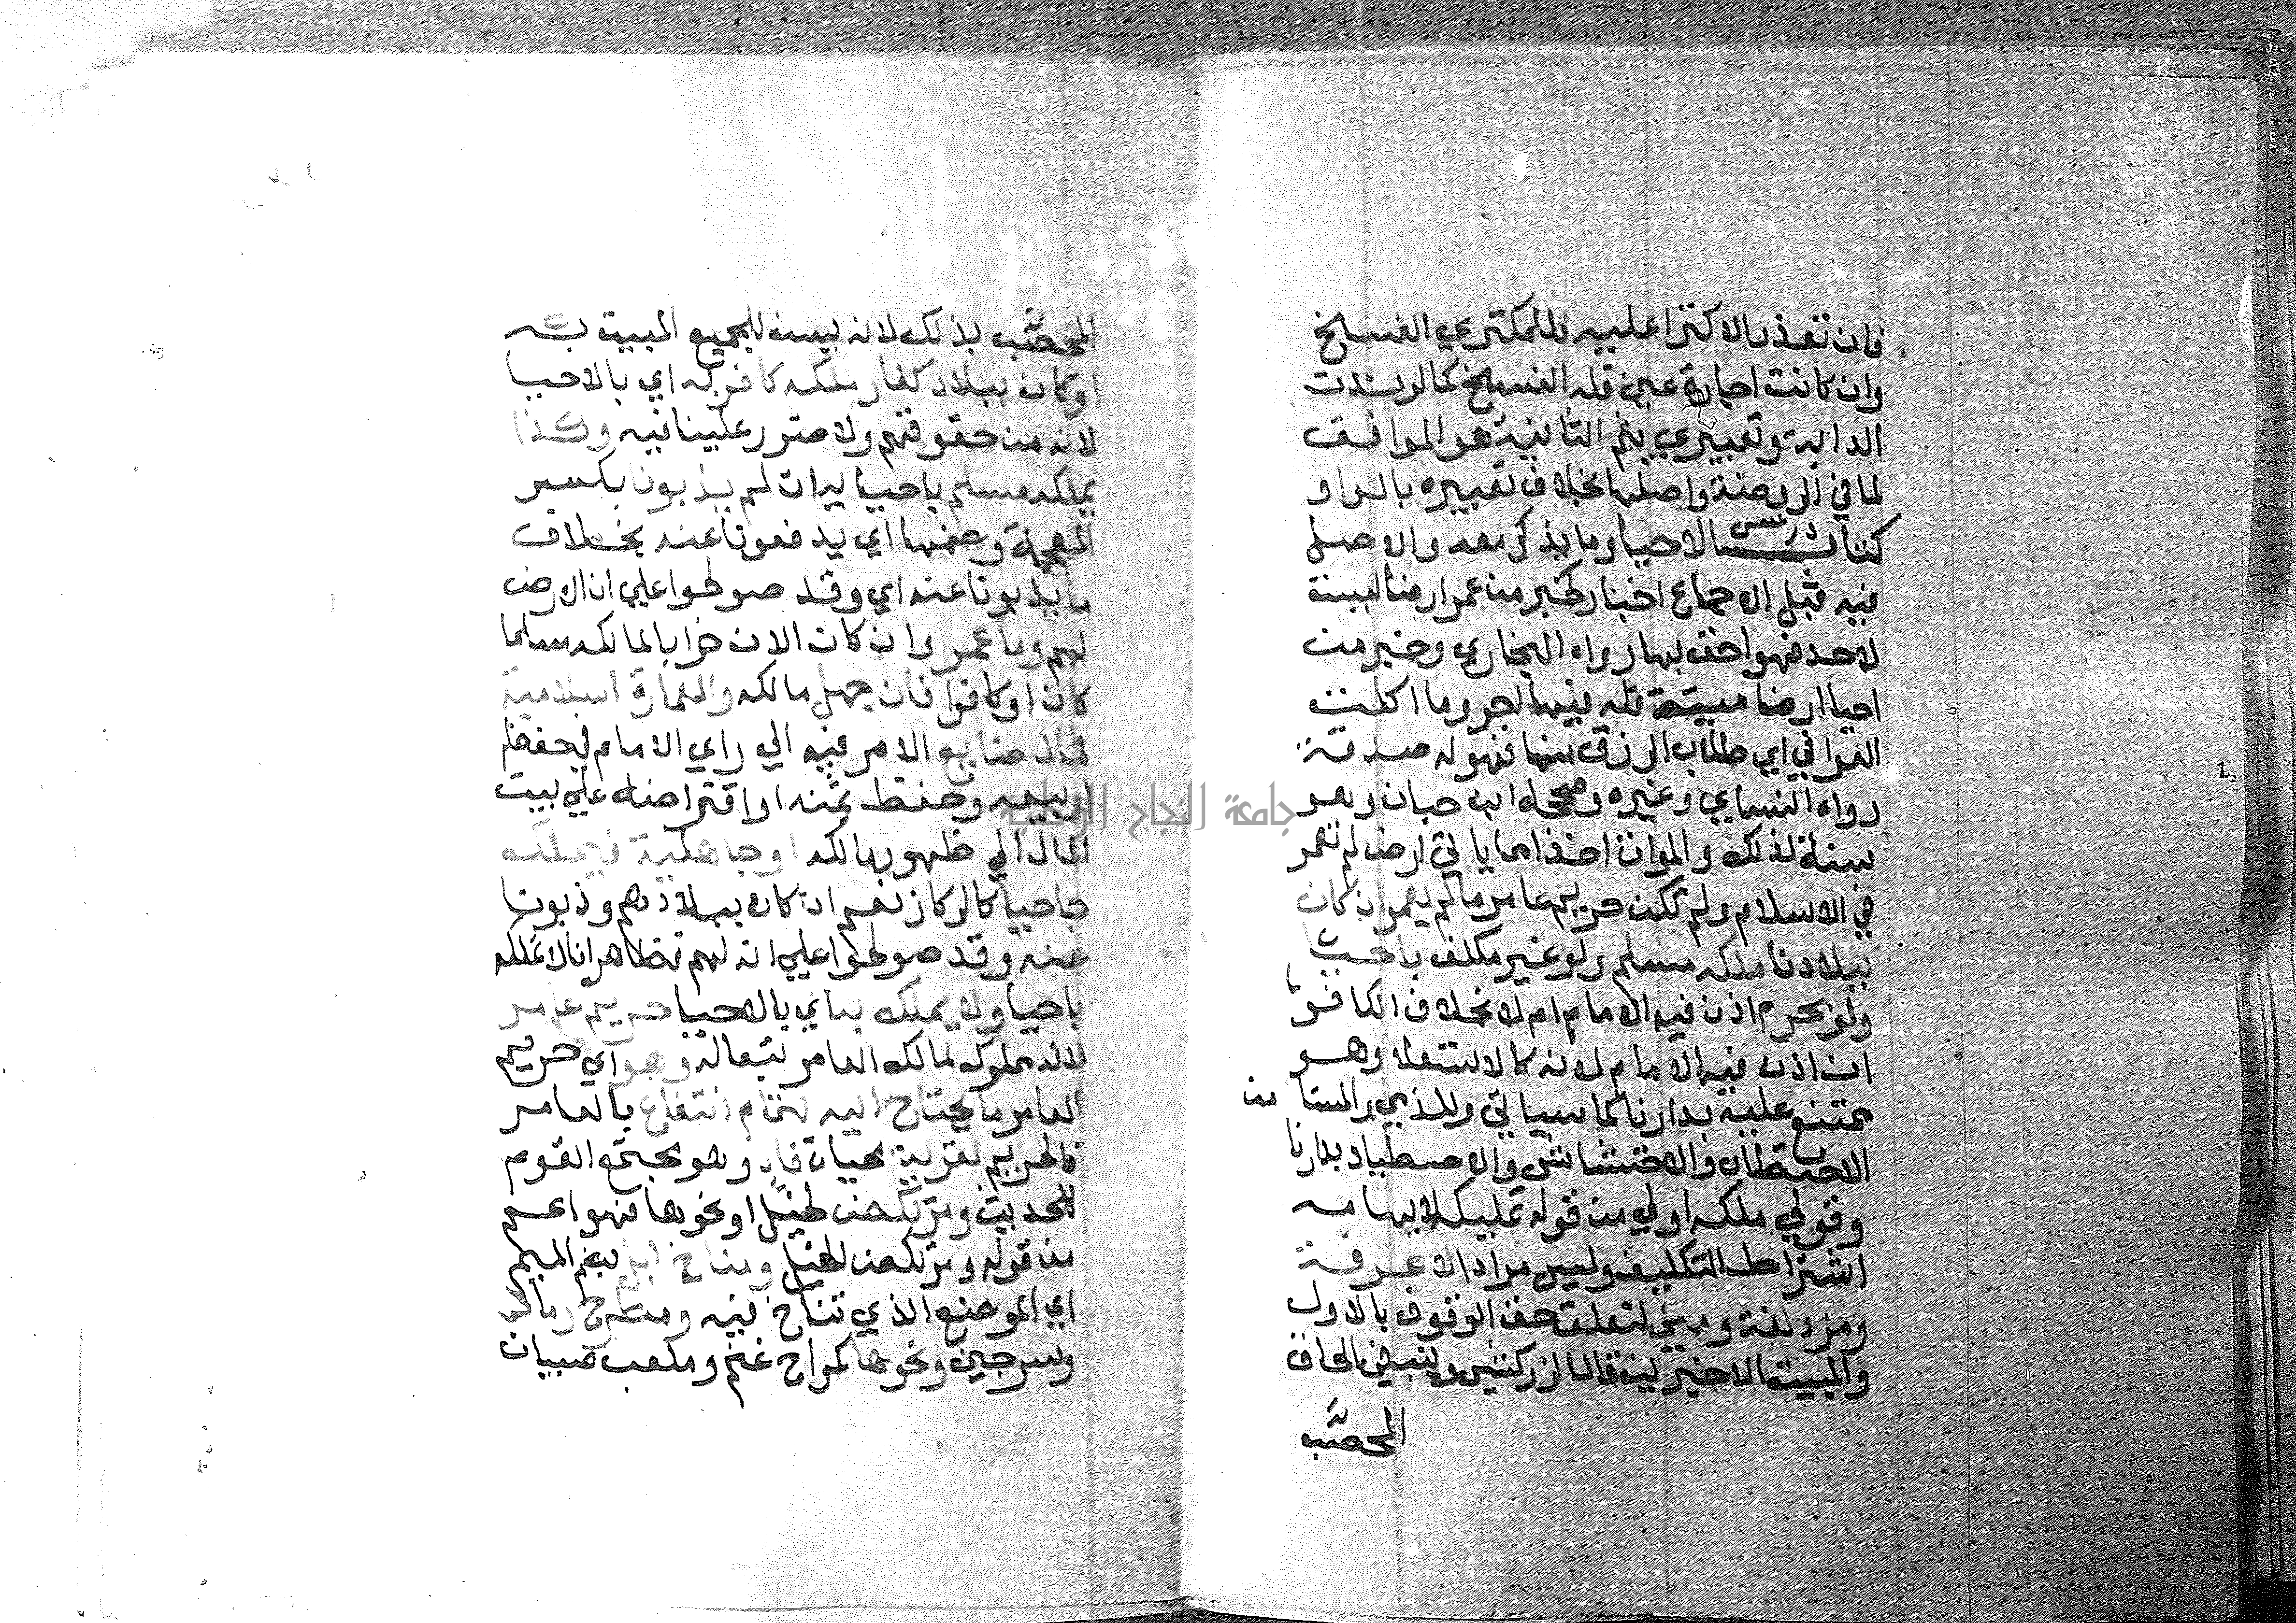 فان تعذر الاكترا عليه فللمكتري الفسخ
وان كانت اجارة عين فله الفسخ كما لو ندت
الدابة وتعبيري بثم الثانية هو الموافق
لما في الروضة واصلها بخلاف تعبيره بالواو
كتاب الاحيا وما يذكر معه والاصل
فيه قبل الاجماع اخبار كخبر من عمر ارضا ليست
لاحد فهو احق بها رواه البخاري وخبر من
احيا ارضا ميتة فله فيها اجر وما اكلت
العوافي اي طلاب الرزق منها فهو له صدقة
رواه النسايي وغيره وصححه ابن حبان وهو
سنة لذلك والموات اخذا مما ياتي ارض لم تعمر
في الاسلام ولم تكن حريم عامر ما لم يعمر ان كان
ببلادنا ملكه مسلم ولو غير مكلف باحيا
ولو بحرم اذن فيه الامام ام لا بخلاف الكافر
ان اذن فيه الامام لانه كالاستعلا وهو
ممتنع عليه بدارنا كما سياتي وللذمي والمستامن
الاحتطاب والاحتشاش والاصطياد بدارنا
وقولي ملكه اولي من قوله تمليك لايهامه
اشتراط التكليف وليس مرادا لا عرفة
ومزدلفة ومني لتعلق حق الوقوف بالاول
والمبيت بالاخيرين قال الزركشي وينبغي الحاق
المحصَّب
المحصَّب بذلك لانه يسن للجميع المبيت به
او كان ببلاد كفار ملكه كافر به اي بالاحيا
لانه من حقوقهم ولا ضرر علينا فيه وكذا
يملكه مسلم باحيايه ان لم يذبونا بكسر
المعجمة وضمها اي يدفعونا عنه بخلاف
ما يذبونا عنه اي وقد صولحوا علي ان الارض
لهم وما عمر وان كان الان خرابا لمالكه مسلما
كان او كافرا فان جهل مالكه والعمارة اسلامية
فمال ضايع الامر فيه الي راي الامام في حفظه
او بيعه وحفظ ثمنه او اقتراضه علي بيت
المال الي ظهور مالكه او جاهلية فيملك
باحيا كالركاز نعم ان كان ببلادهم وذبونا
عنه وقد صولحوا علي انه لهم فظاهر انا لا نملكه
باحيا ولا يملك به اي بالاحيا حريم عامر
لانه مملوك لمالك العامر تبعا له وهو اي حريم
العامر ما يحتاج اليه لتمام انتفاع بالعامر
فالحريم لقرية محياة ناد وهو مجتمع القوم
للحديث ومرتكض لخيل او نحوها فهو اعم
من قوله ومرتكض للخيل ومناخ ابل بضم الميم
اي الموضع الذي تناخ فيه ومطرح رماد
وسرجين ونحوها كمراح غنم وملعب صبيان
جامعة النجاح الوطنية